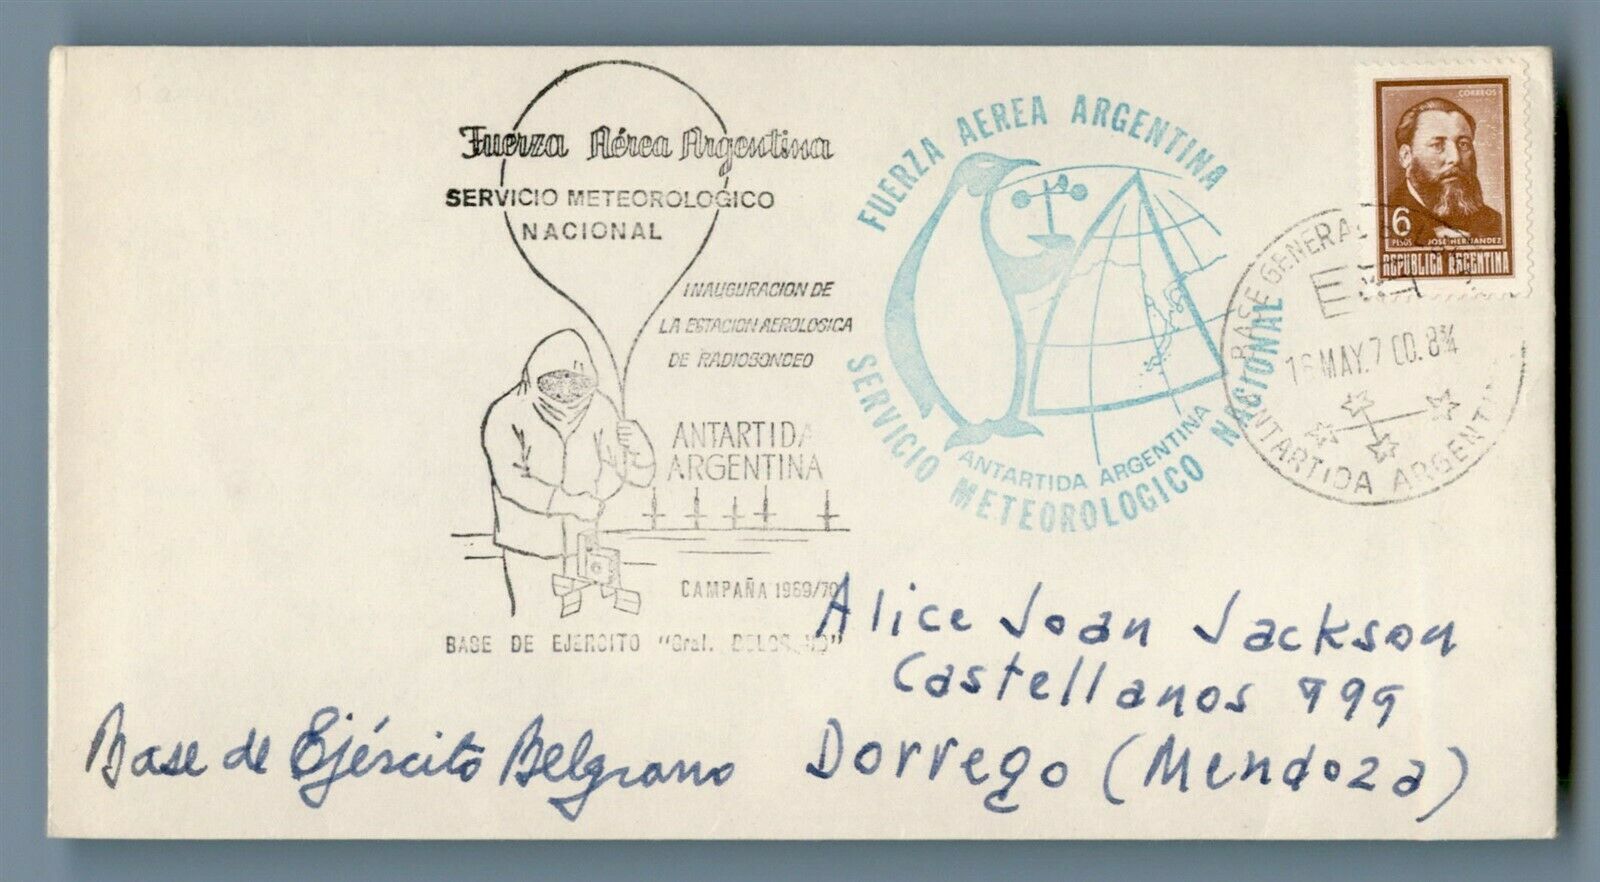 Fuerza Aérea Argentina
SERVICIO METEOROLOGICO
NACIONAL
INAUGURACION DE
LA ESTACION AEROLOGICA
DE RADIOSONDEO
ANTARTIDA
ARGENTINA
CAMPAÑA 1969/70
BASE DE EJERCITO "Gral. BELGRANO"
FUERZA AEREA ARGENTINA
ANTARTIDA ARGENTINA
SERVICIO METEOROLOGICO NACIONAL
CORREOS
6
PESOS
JOSE HERNANDEZ
REPUBLICA ARGENTINA
BASE GENERAL
16 MAY. 7
ANTARTIDA ARGENTINA
Alice Joan Jackson
Castellanos 999
Dorrego (Mendoza)
Base de Ejército Belgrano